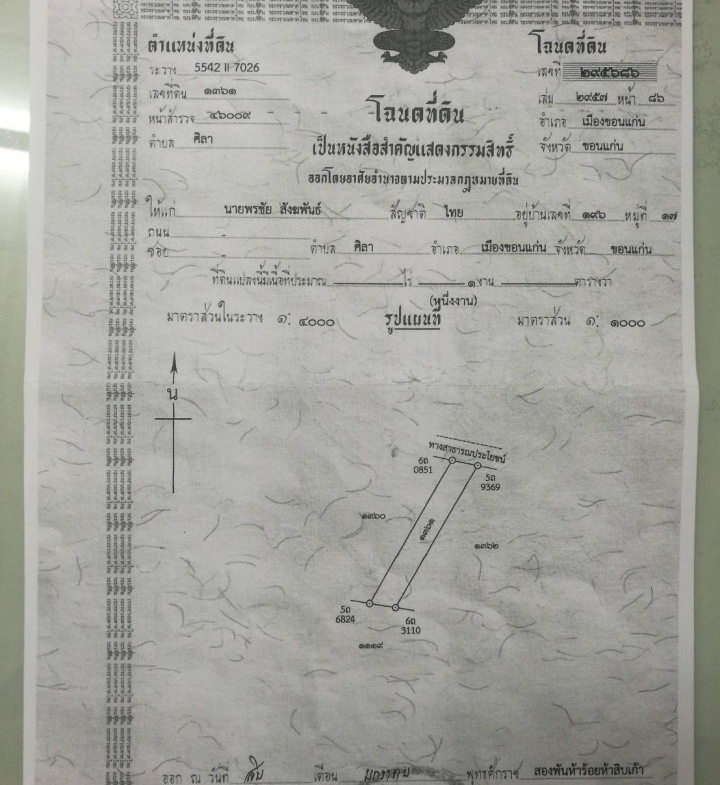 ตำแหน่งที่ดิน
ระวาง 5542 II 7026
เลขที่ดิน ๑๓๖๑
หน้าสำรวจ ๔๖๐๐๙
ตำบล ศิลา
โฉนดที่ดิน
เลขที่ ๒๙๕๖๘๖
เล่ม ๒๙๕๗ หน้า ๘๖
อำเภอ เมืองขอนแก่น
จังหวัด ขอนแก่น
โฉนดที่ดิน
เป็นหนังสือสำคัญแสดงกรรมสิทธิ์
ออกโดยอาศัยอำนาจตามประมวลกฎหมายที่ดิน
ให้แก่ นายพรชัย สังฆพันธ์ สัญชาติ ไทย อยู่บ้านเลขที่ ๑๙๖ หมู่ที่ ๑๗
ถนน -
ซอย - ตำบล ศิลา อำเภอ เมืองขอนแก่น จังหวัด ขอนแก่น
ที่ดินแปลงนี้มีเนื้อที่ประมาณ ไร่ ๑ งาน ตารางวา
(หนึ่งงาน)
มาตราส่วนในระวาง ๑: ๔๐๐๐ รูปแผนที่ มาตราส่วน ๑: ๑๐๐๐
น
ทางสาธารณประโยชน์
6ถ
0851
5ถ
9369
๑๓๖๐
๑๓๖๑
๑๓๖๒
5ถ
6824
6ถ
3110
๑๑๑๙
ออก ณ วันที่ สิบ เดือน มกราคม พุทธศักราช สองพันห้าร้อยห้าสิบเก้า